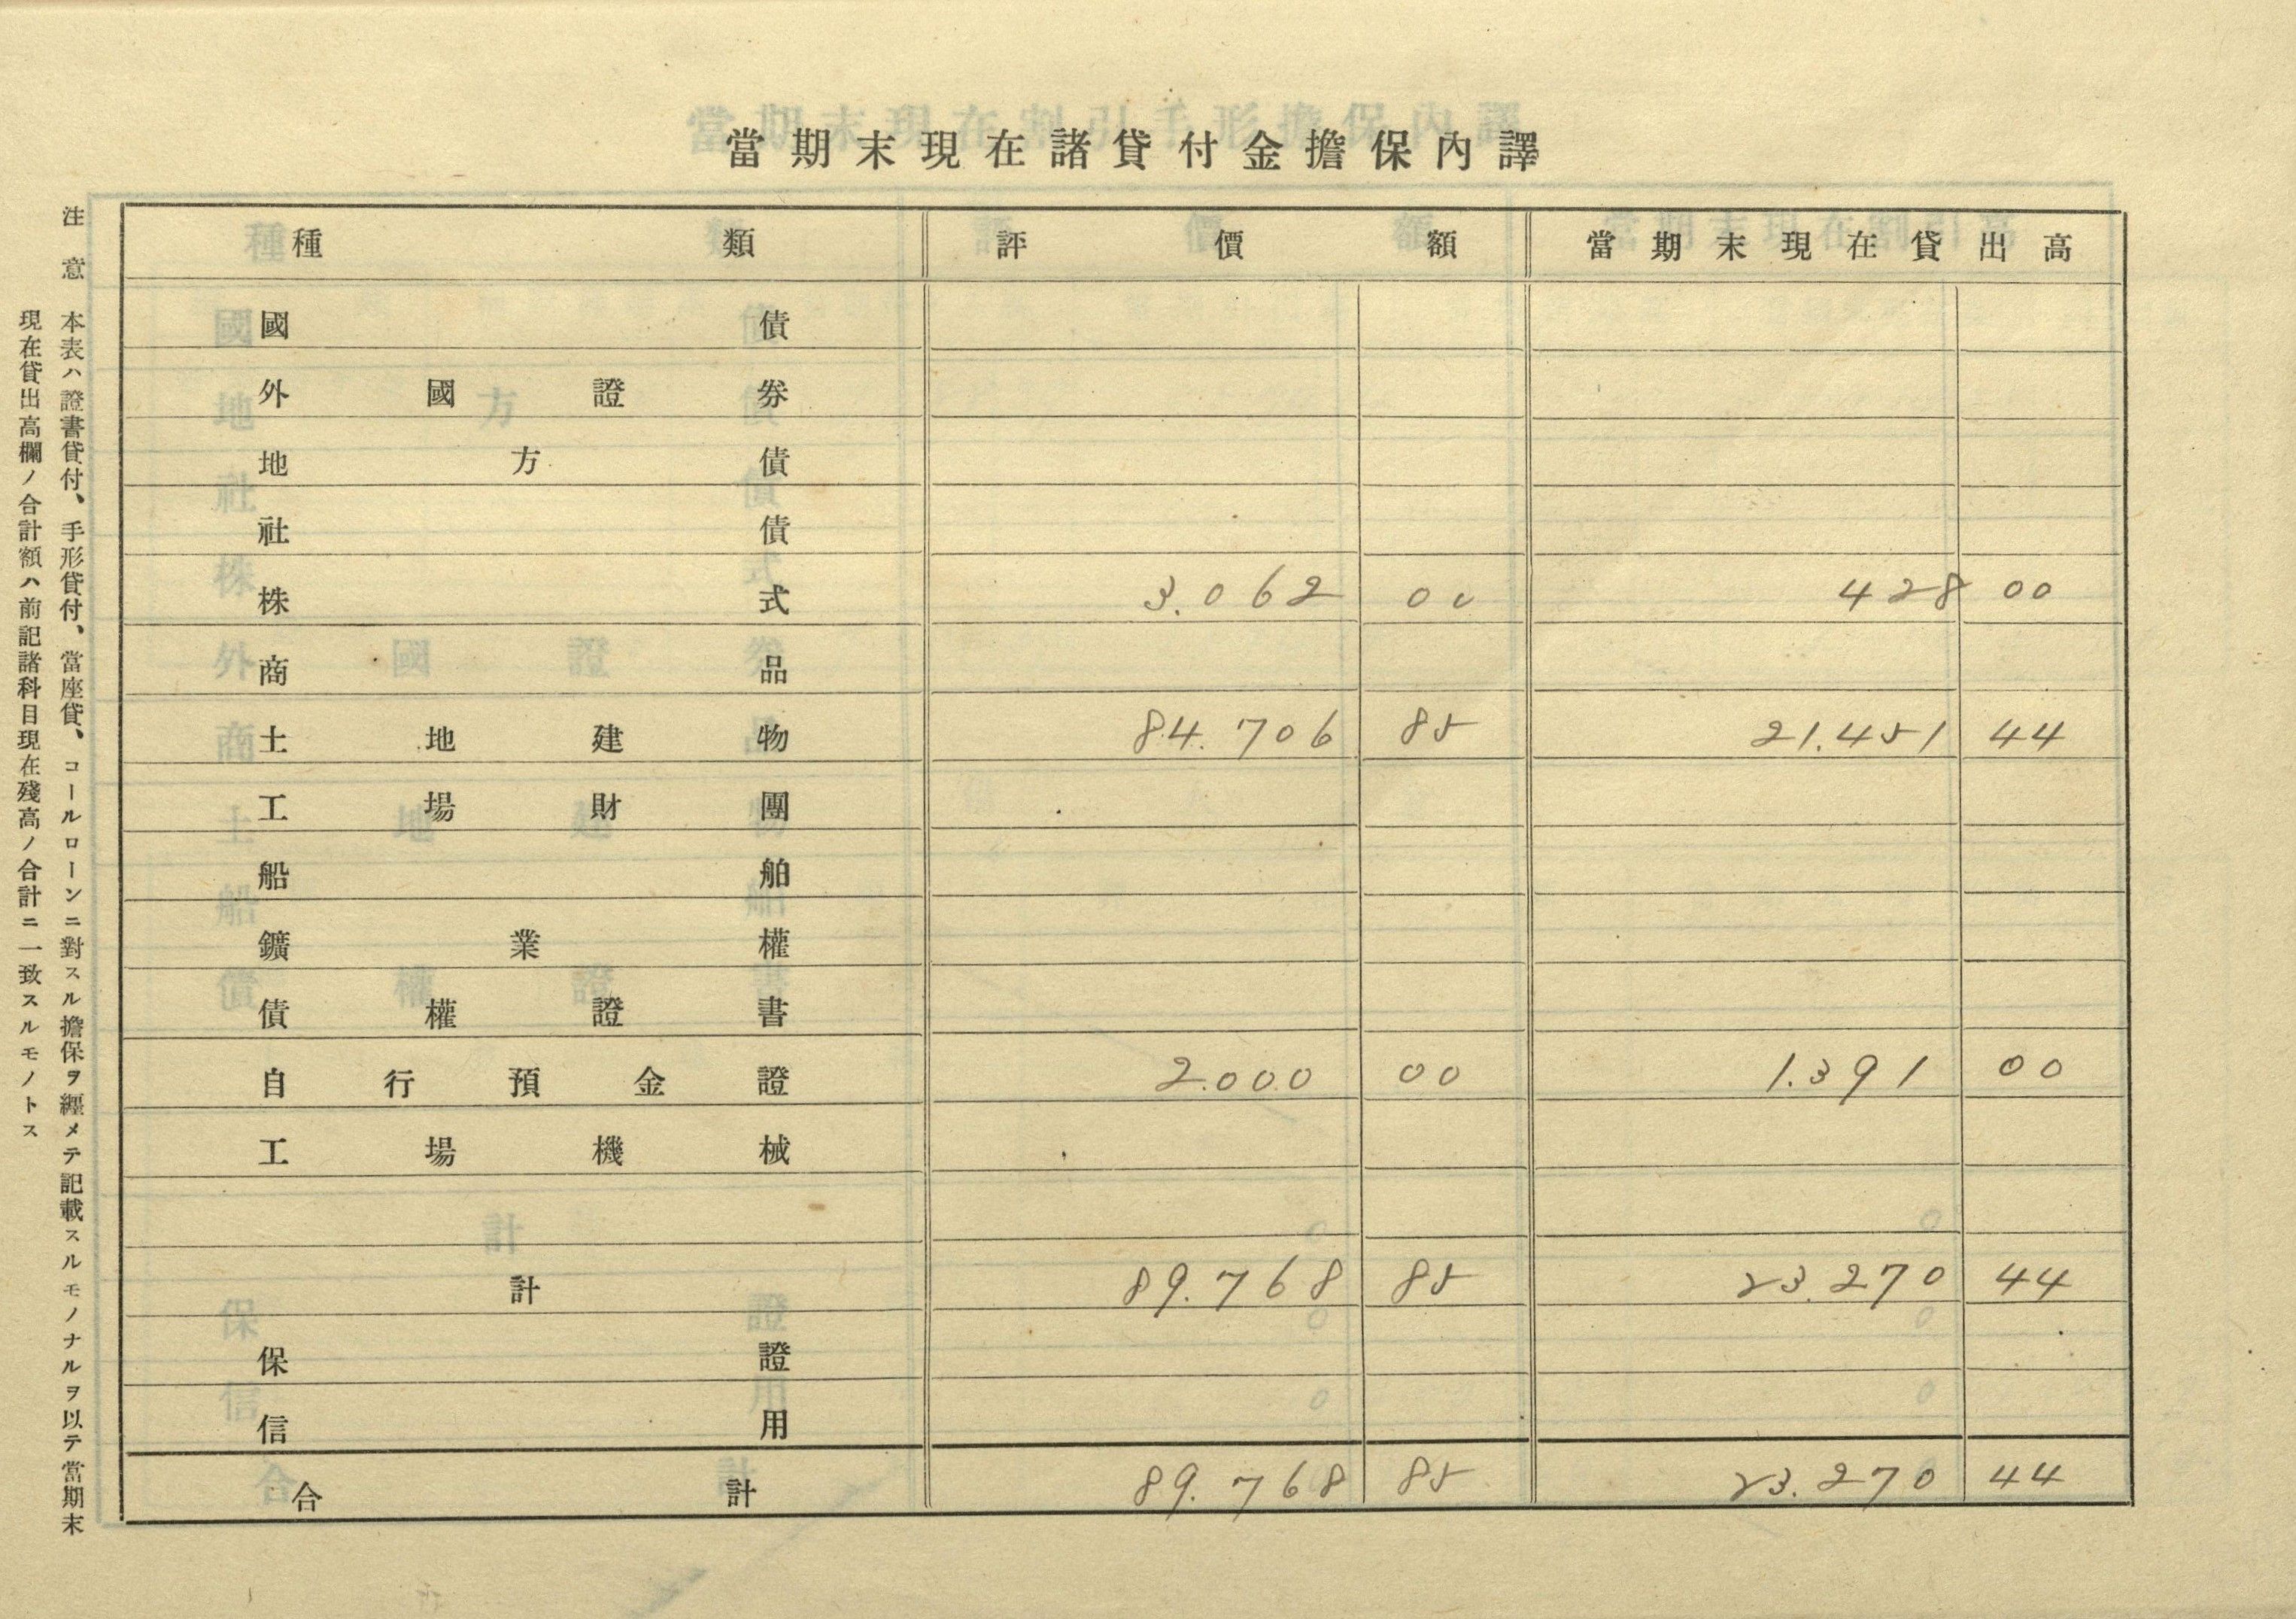 當期末現在諸貸付金擔保內譯
種類 評價額 當期末現在貸出高
國債
外國證券
地方債
社債
株式 3.062 00 428 00
商品
土地建物 84.706 85 21.451 44
工場財團
船舶
鑛業權
債權證書
自行預金證 2.000 00 1.391 00
工場機械
計 89.768 85 23.270 44
保證
信用
合計 89.768 85 23.270 44
注意 本表ハ證書貸付、手形貸付、當座貸、コールローンニ對スル擔保ヲ纒メテ記載スルモノナルヲ以テ當期末
現在貸出高欄ノ合計額ハ前記諸科目現在殘高ノ合計ニ一致スルモノトス